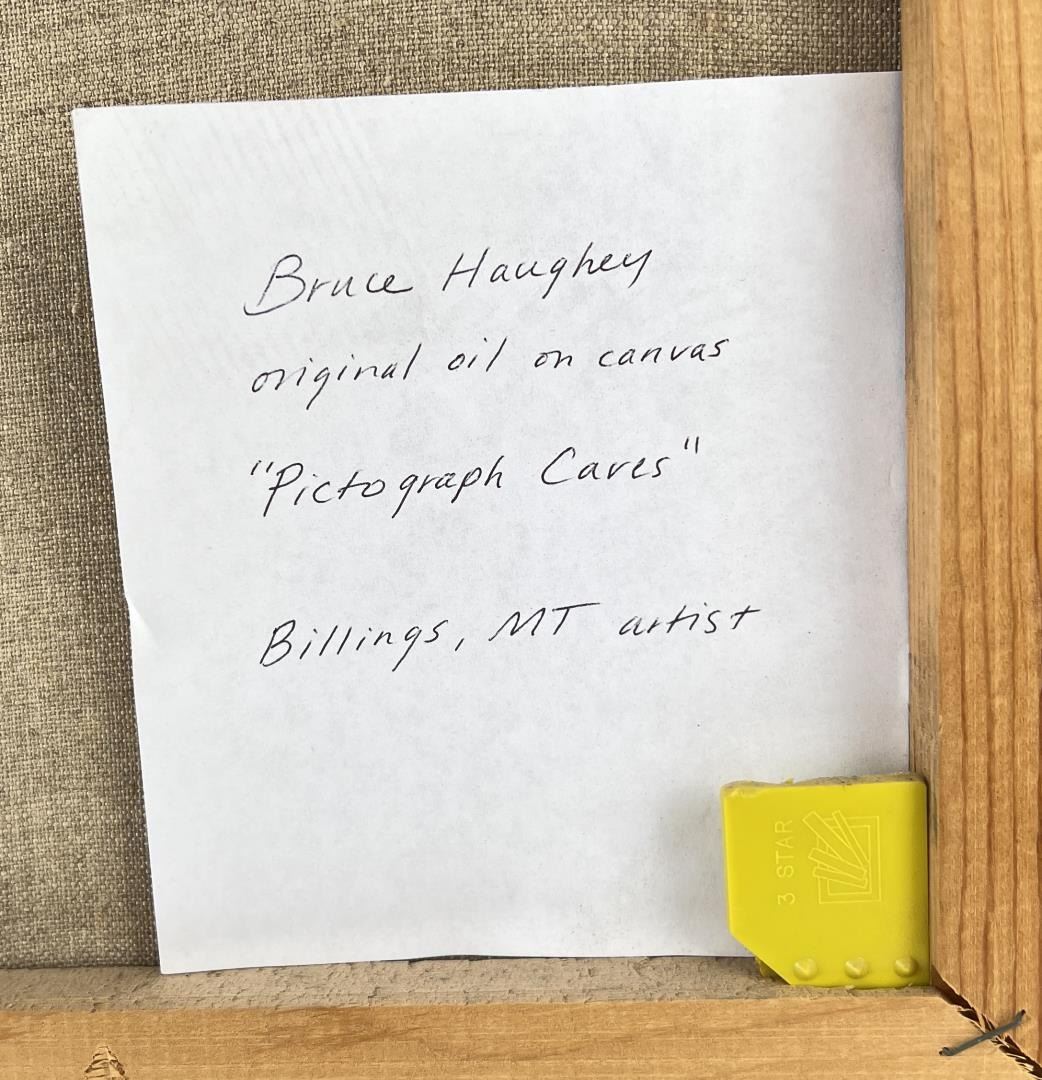 Bruce Haughey
original oil on canvas
"Pictograph Caves"
Billings, MT artist
3 STAR